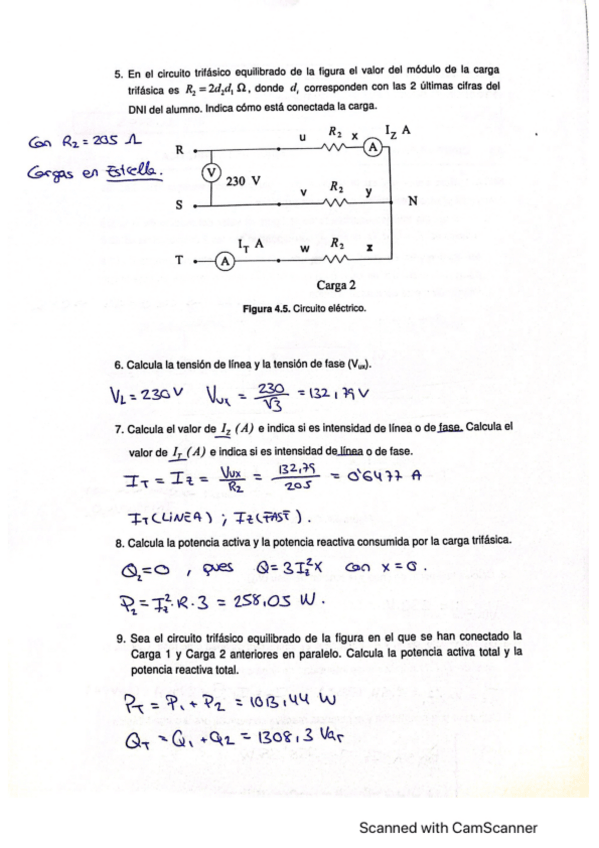 5. En el circuito trifásico equilibrado de la figura el valor del módulo de la carga
trifásica es R₂ = 2d₂d₁ Ω, donde dᵢ corresponden con las 2 últimas cifras del
DNI del alumno. Indica cómo está conectada la carga.
Con R₂ = 205 Ω
Cargas en Estrella.
R
V
230 V
S
T
A
I_T A
u
R₂
x
I_Z A
A
v
R₂
y
N
w
R₂
z
Carga 2
Figura 4.5. Circuito eléctrico.
6. Calcula la tensión de línea y la tensión de fase (Vux).
V_L = 230 V   Vux = 230/√3 = 132,79 V
7. Calcula el valor de I_Z (A) e indica si es intensidad de línea o de fase. Calcula el
valor de I_T (A) e indica si es intensidad de línea o de fase.
I_T = I_Z = Vux/R₂ = 132,79/205 = 0'6477 A
I_T (LÍNEA) ; I_Z (FASE).
8. Calcula la potencia activa y la potencia reactiva consumida por la carga trifásica.
Q₂ = 0 , pues Q = 3I_Z²X con x = 0.
P₂ = I_Z²·R·3 = 258,05 W.
9. Sea el circuito trifásico equilibrado de la figura en el que se han conectado la
Carga 1 y Carga 2 anteriores en paralelo. Calcula la potencia activa total y la
potencia reactiva total.
P_T = P₁ + P₂ = 1013,44 W
Q_T = Q₁ + Q₂ = 1308,3 Var
Scanned with CamScanner